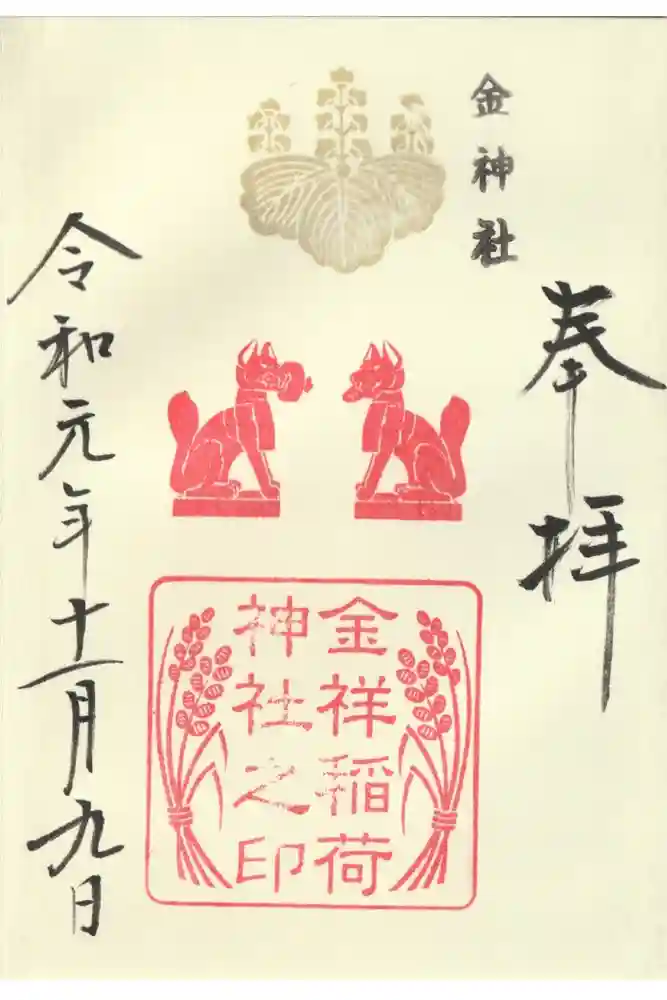 奉拝
金神社
金祥稲荷
神社之印
令和元年十一月九日